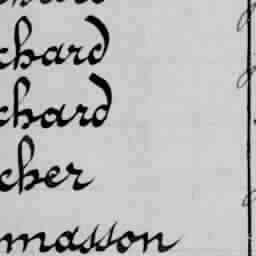 chard
chard
cher
masson